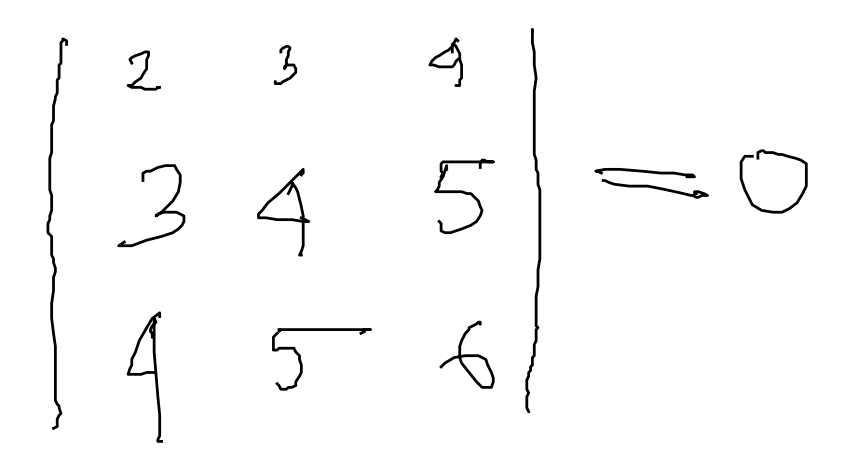 | 2 3 4 |
| 3 4 5 | = 0
| 4 5 6 |